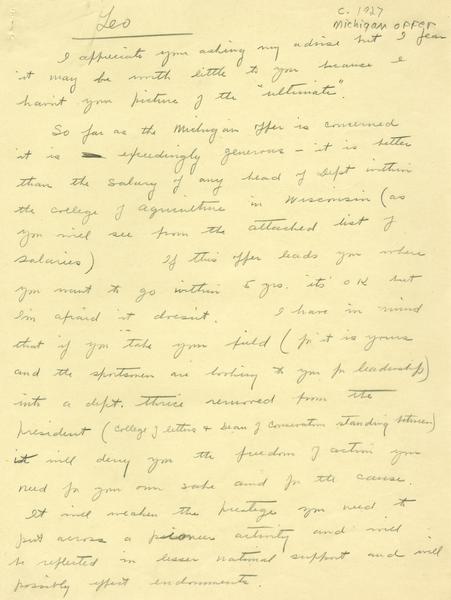 Leo
c. 1927
Michigan offer
I appreciate your asking my advise but I fear
it may be worth little to you because I
havn't your picture of the "ultimate".
So far as the Michigan offer is concerned
it is exceedingly generous - it is better
than the salary of any head of Dept within
the college of agriculture in Wisconsin (as
you will see from the attached list of
salaries) If this offer leads you where
you want to go within 5 yrs. it's OK but
I'm afraid it doesn't. I have in mind
that if you take your field (for it is yours
and the sportsmen are looking to you for leadership)
into a dept. thrice removed from the
president (College of letters & Dean of Conservation standing between)
it will deny you the freedom of action you
need for your own sake and for the cause.
It will weaken the prestige you need to
put across a pioneer activity and will
be reflected in lesser national support and will
possibly effect endowments.